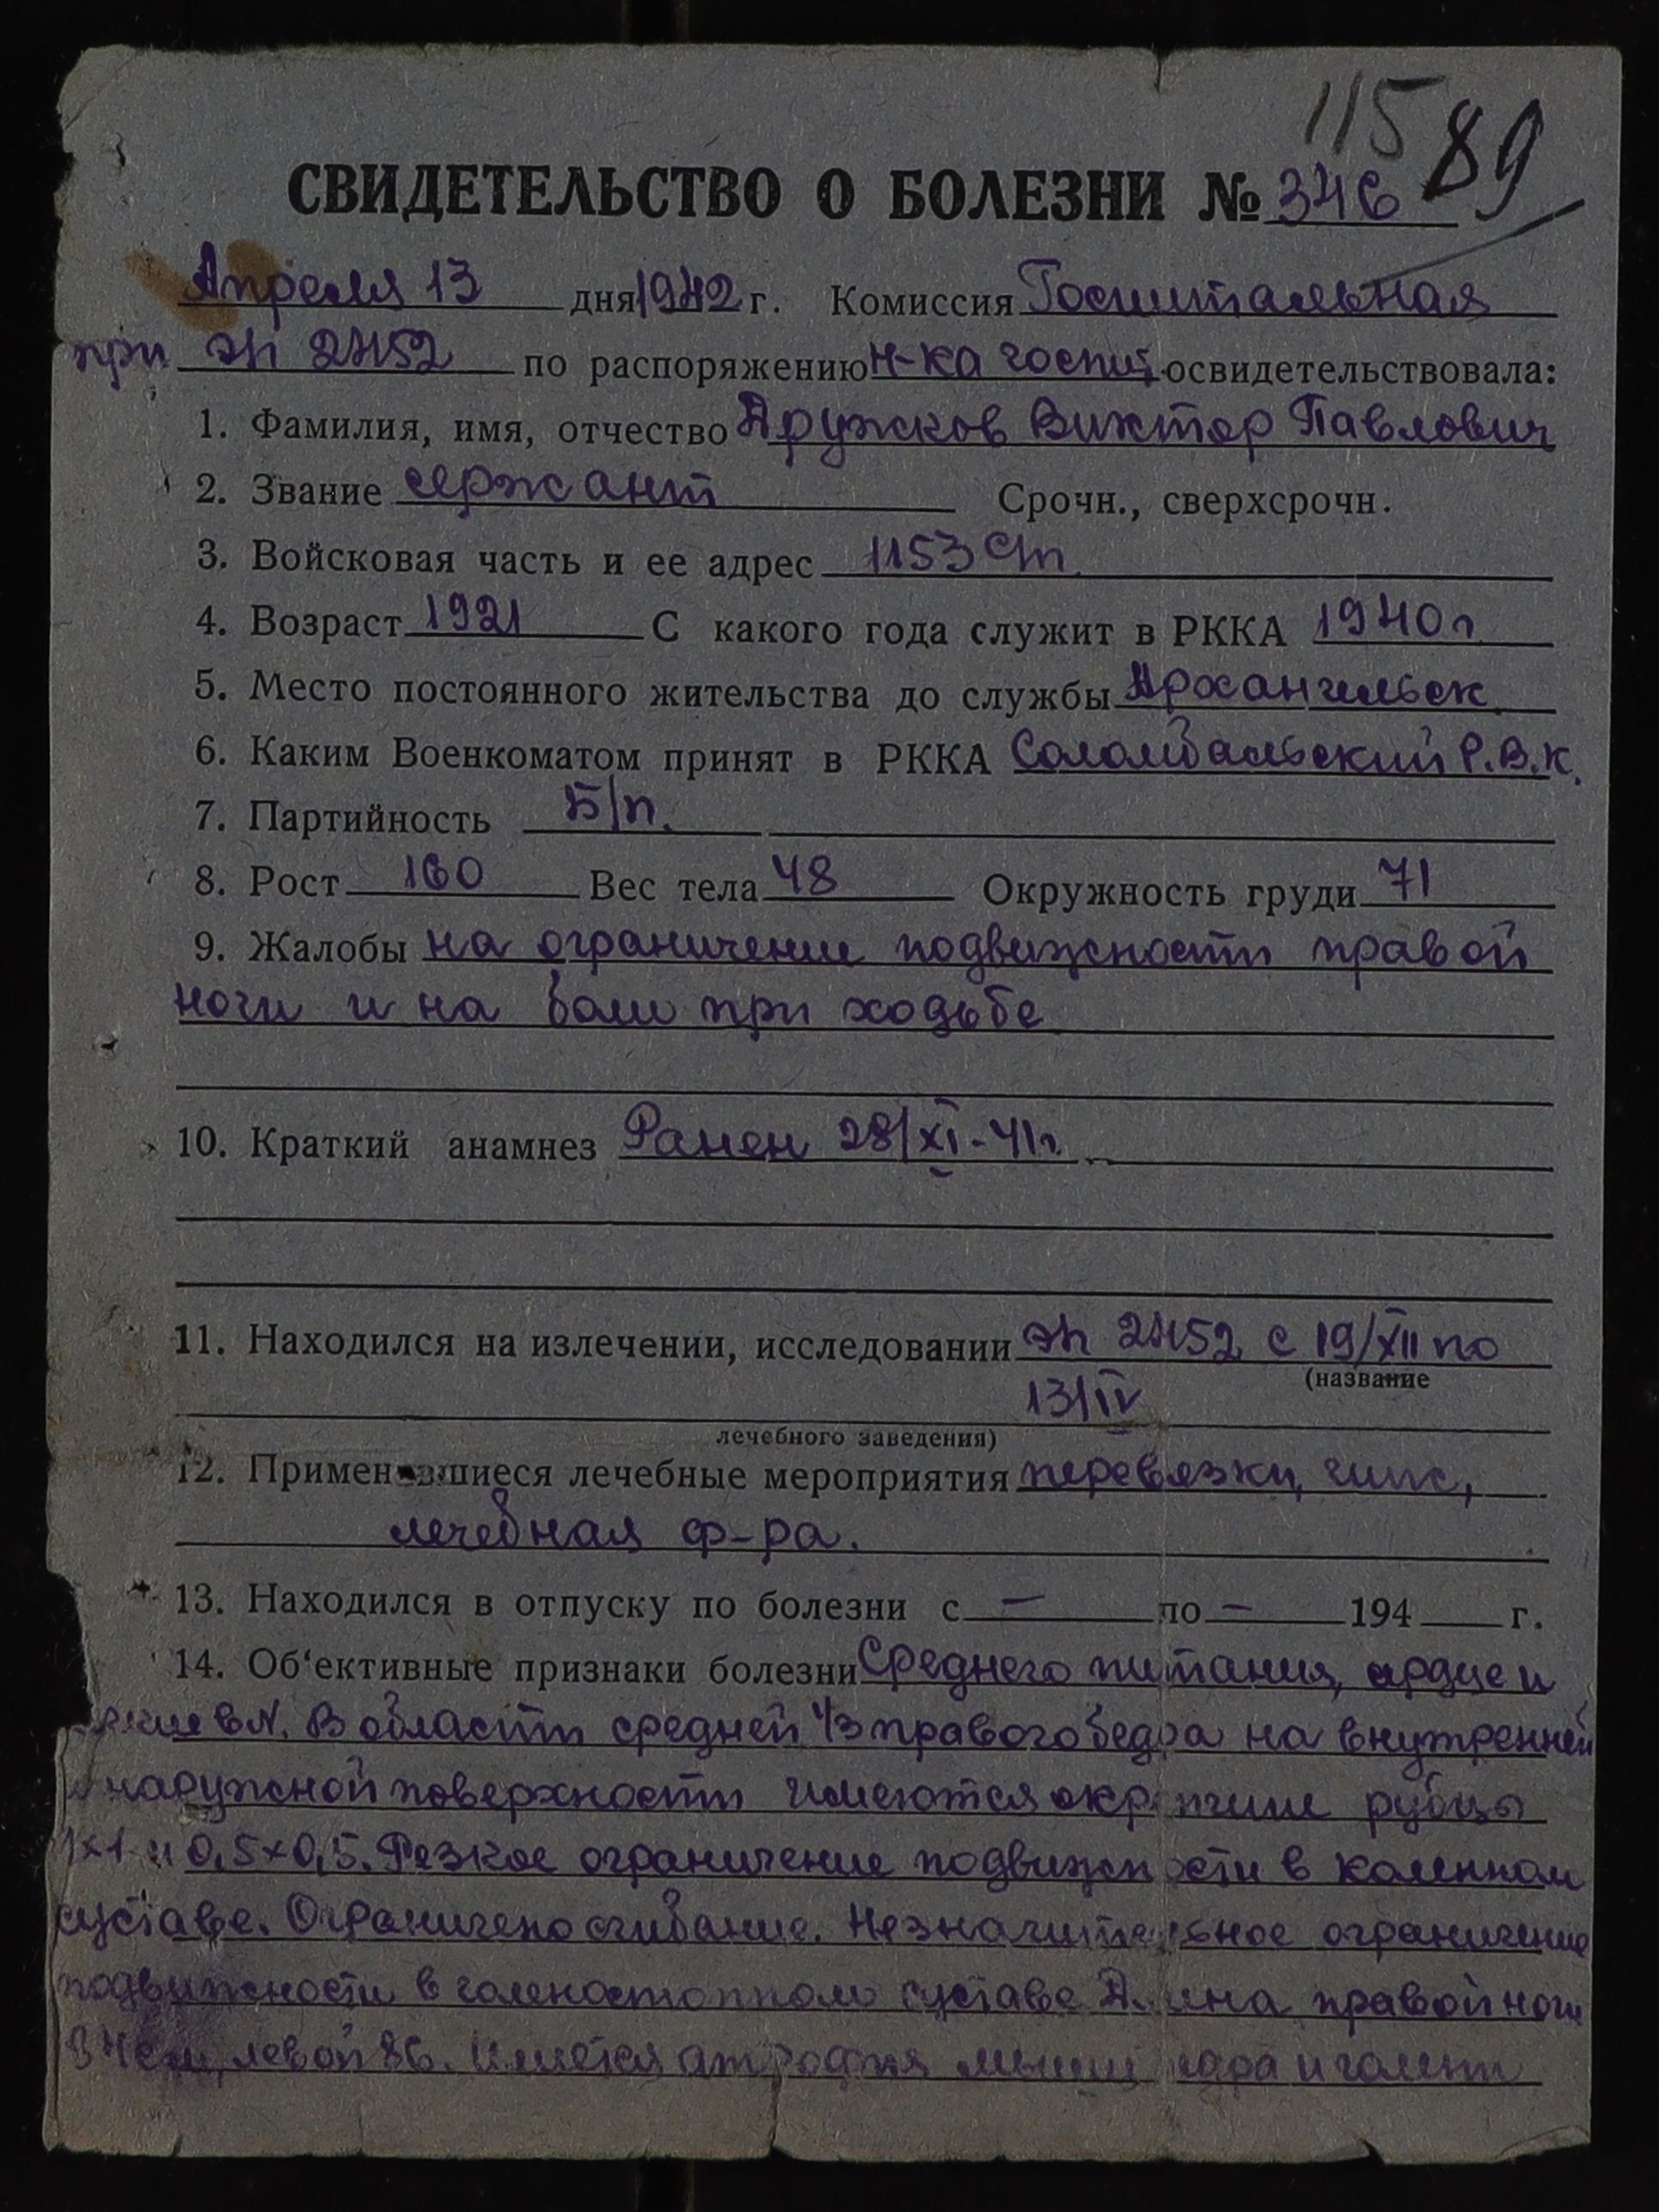 115 89
СВИДЕТЕЛЬСТВО О БОЛЕЗНИ № 346
Апреля 13 дня 1942 г. Комиссия Госпитальная
при эг 2452 по распоряжению н-ка госпит. освидетельствовала:
1. Фамилия, имя, отчество Дружков Виктор Павлович
2. Звание сержант Срочн., сверхсрочн.
3. Войсковая часть и ее адрес 1153 сп.
4. Возраст 1921 С какого года служит в РККА 1940 г
5. Место постоянного жительства до службы Архангельск.
6. Каким Военкоматом принят в РККА Соломбальский Р.В.К.
7. Партийность Б/п.
8. Рост 160 Вес тела 48 Окружность груди 71
9. Жалобы на ограничение подвижности правой
ноги и на боли при ходьбе
10. Краткий анамнез Ранен 28/XI-41г.
11. Находился на излечении, исследовании эг 2452 с 19/XII по
(название
13/IV
лечебного заведения)
12. Применявшиеся лечебные мероприятия перевязки, гипс,
лечебная ф-ра.
13. Находился в отпуску по болезни с — по — 194 г.
14. Об‘ективные признаки болезни Среднего питания, сердце и
в N. В области средней 1/3 правого бедра на внутренней
и наружной поверхности имеются окрепшие рубцы
1×1 и 0,5×0,5. Резкое ограничение подвижности в коленном
суставе. Ограничено сгибание. Незначительное ограничение
подвижности в голеностопном суставе Длина правой ноги
84 см, левой 86. Имеется атрофия мышц бедра и голени